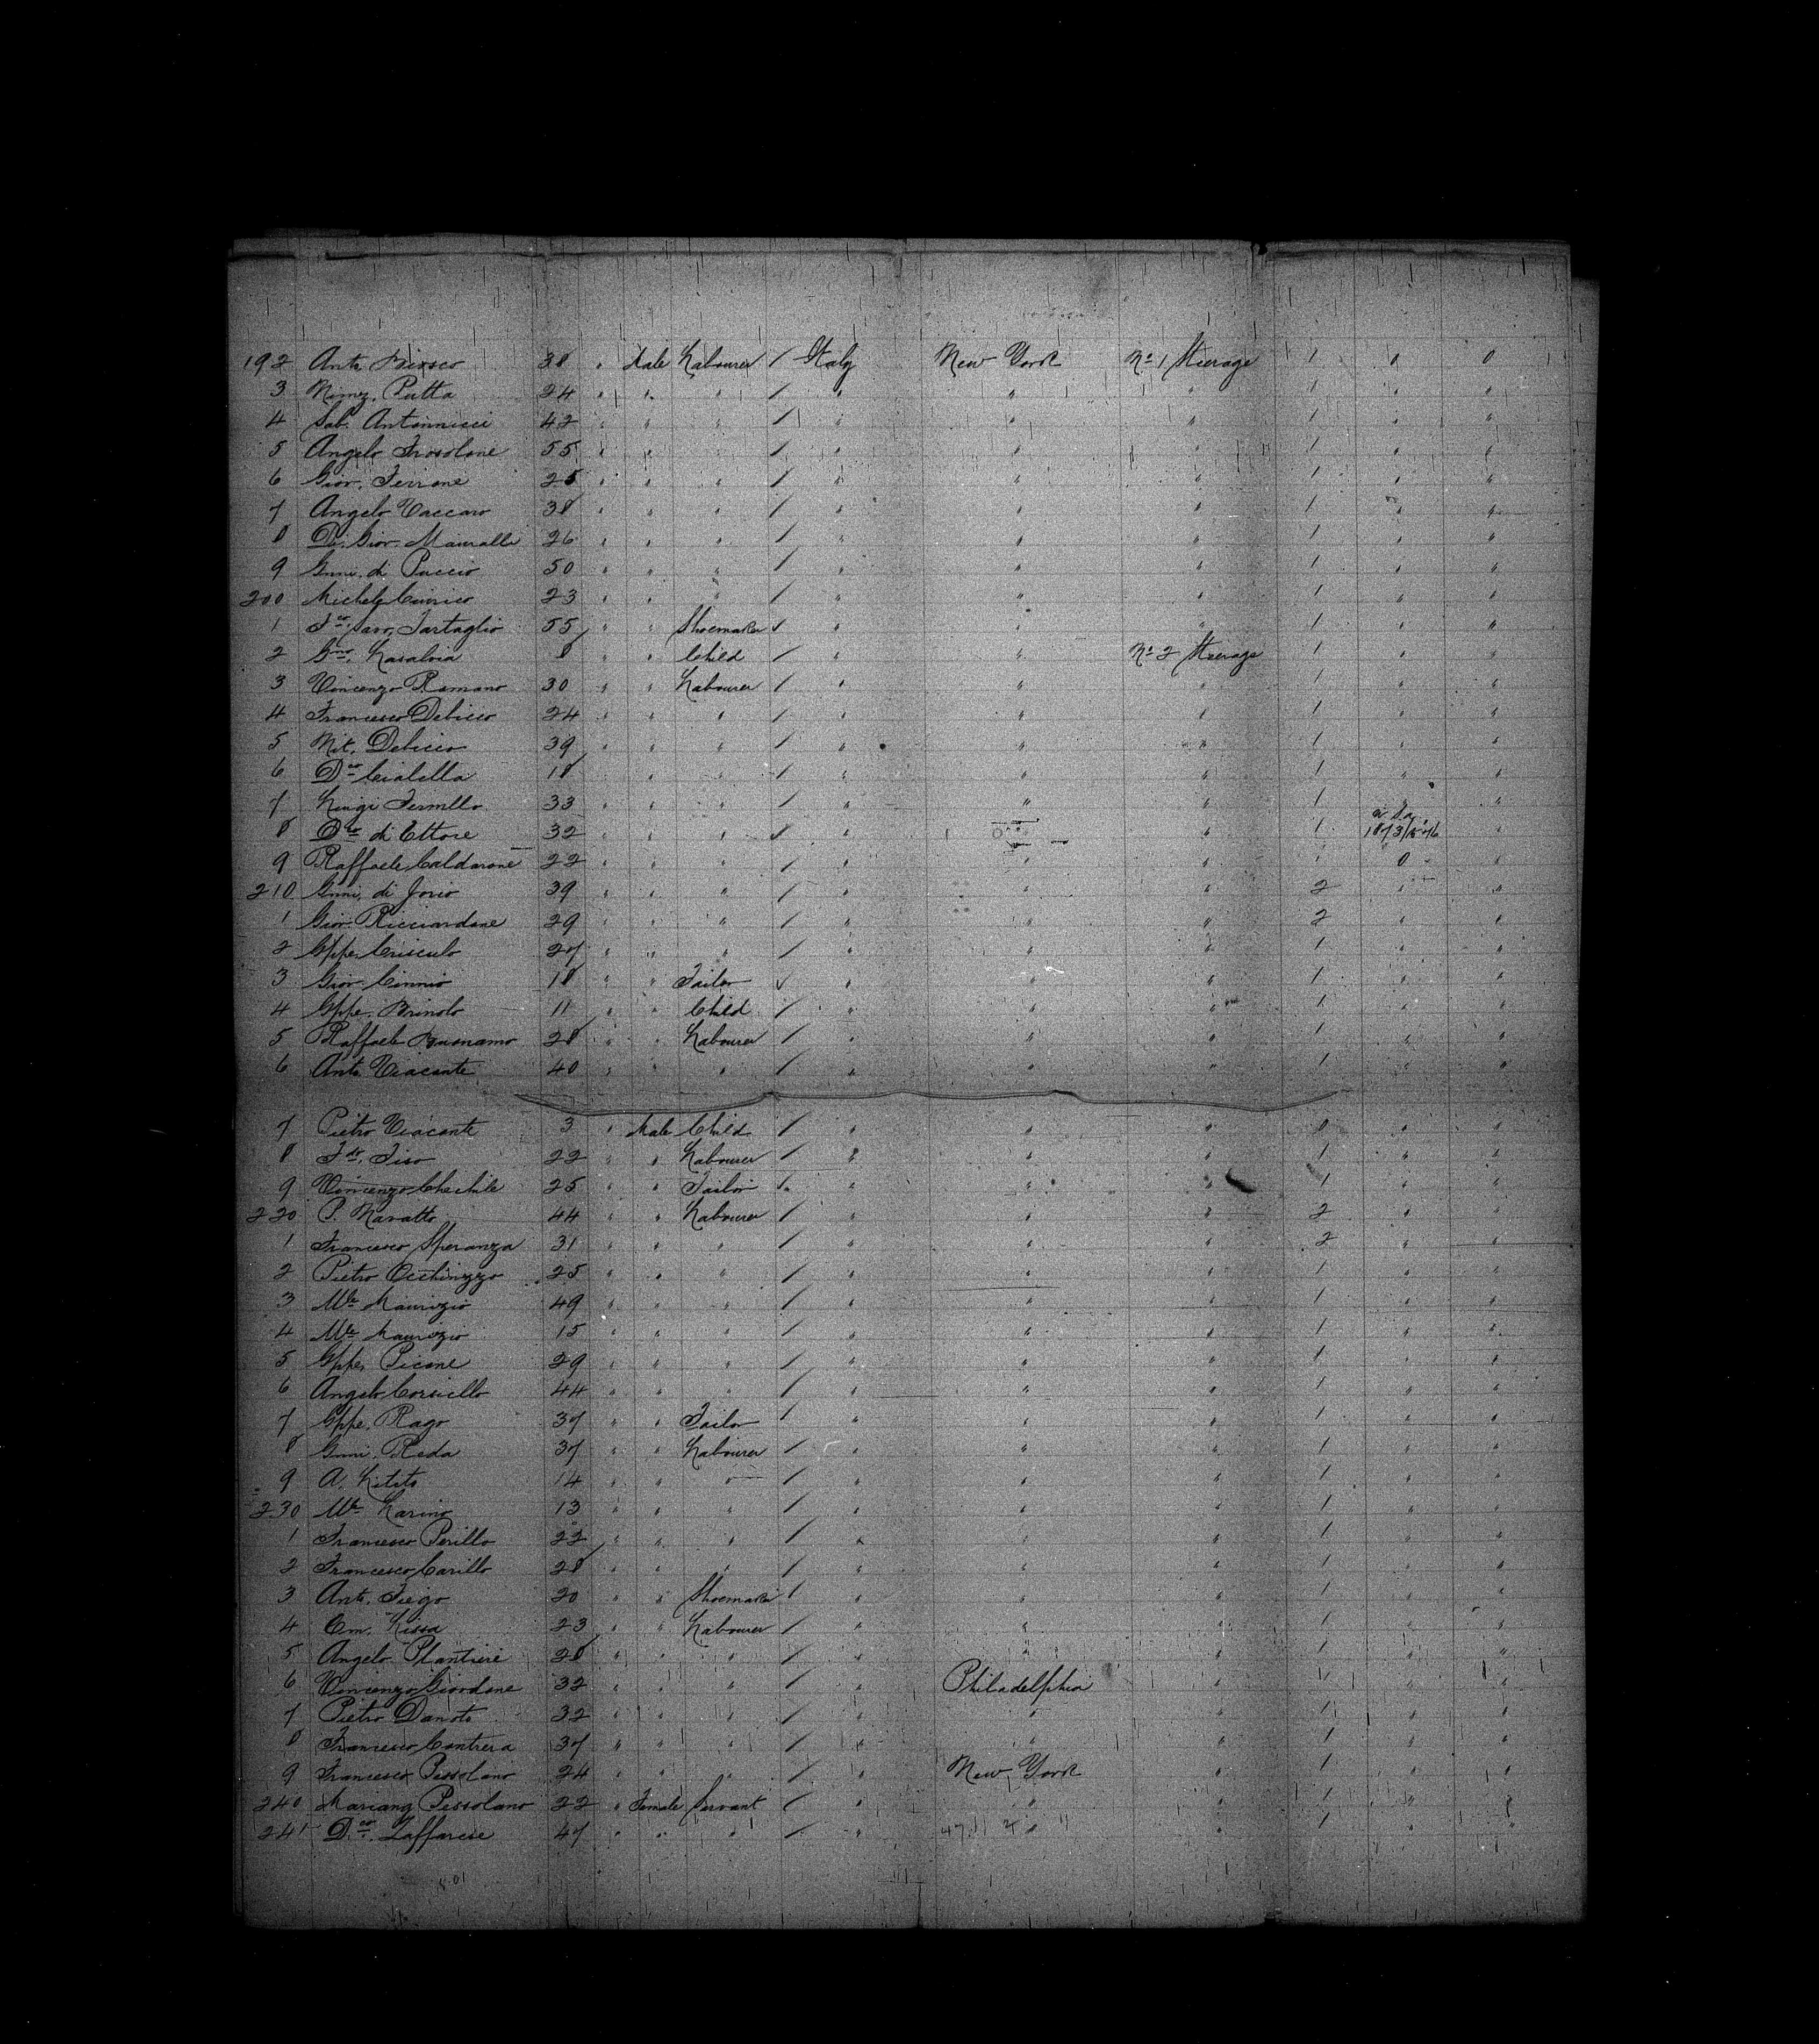 192 Anto Biosco 38 " Male Labourer / Italy New York No 1 Steerage 1 0 0
3 Nimz. Putta 24 " " " / " " " 1 " "
4 Sab. Antonnicci 42 " " " / " " " 1 " "
5 Angelo Frosolone 55 " " " / " " " 1 " "
6 Giov. Ferrone 25 " " " / " " " 1 " "
7 Angelo Vaccaro 38 " " " / " " " 1 " "
8 Di Giov. Mauralli 26 " " " / " " " 1 " "
9 Gnni. di Puccio 50 " " " / " " " 1 " "
200 Michele Cinrico 23 " " " / " " " 1 " "
1 Fco Sav. Tartaglio 55 " " Shoemaker / " " " 1 " "
2 Gno. Lasalvia 8 " " Child / " " No 2 Steerage 1 " "
3 Vincenzo Romano 30 " " Labourer / " " " 1 " "
4 Francesco Debicco 24 " " " / " " " 1 " "
5 Nit. Debicco 39 " " " / " " " 1 " "
6 Dco Cialella 18 " " " / " " " 1 " "
7 Luigi Fermllo 33 " " " / " " " 1 " "
8 Dco di Ettore 32 " " " / " " " 1 "
9 Raffaele Caldarone 22 " " " / " " " " 0 "
210 Gnni. di Jorio 39 " " " / " " " 2 " "
1 Giov. Ricciardone 29 " " " / " " " 2 " "
2 Gppe Crisculo 27 " " " / " " " 1 " "
3 Giov. Cinnio 18 " " Tailor / " " " 1 " "
4 Gppe. Brindo 11 " " Child / " " " 1 " "
5 Raffaele Buonamo 28 " " Labourer / " " " 1 " "
6 Anto Viacante 40 " " " / " " " 1 " "
7 Pietro Viacante 3 " Male Child / " " " 0 " "
8 Fdo. Tiso 22 " " Labourer / " " " 1 " "
9 Vincenzo Chechile 25 " " Tailor / " " " 1 " "
220 P. Navatto 44 " " Labourer / " " " 2 " "
1 Francesco Speranza 31 " " " / " " " 2 " "
2 Pietro Occhinzzo 25 " " " / " " " 1 " "
3 Mle Maurizio 49 " " " / " " " 1 " "
4 Mle Maurizio 15 " " " / " " " 1 " "
5 Gppe. Picone 29 " " " / " " " 1 " "
6 Angelo Corsiello 44 " " " / " " " 1 " "
7 Gppe. Rago 37 " " Tailor / " " " 1 " "
8 Gnni. Reda 37 " " Labourer / " " " 1 " "
9 A. Litito 14 " " " / " " " 1 " "
230 Mle Larino 13 " " " / " " " 1 " "
1 Francesco Perillo 22 " " " / " " " 1 " "
2 Francesco Carillo 28 " " " / " " " 1 " "
3 Anto. Tiego 20 " " Shoemaker / " " " 1 " "
4 Em. Lissa 23 " " Labourer / " " " 1 " "
5 Angelo Plantieri 28 " " " / " " " 1 " "
6 Vincenzo Giordone 32 " " " / " Philadelphia " 1 " "
7 Pietro Danoto 32 " " " / " " " 1 " "
8 Francesco Contrera 37 " " " / " " " 1 " "
9 Francesco Pessolano 24 " " " / " New York " 1 " "
240 Mariang Pessolano 22 " Female Servant / " " " 1 " "
241 Dco. Zaffarese 47 " " " / " " " 1 " "